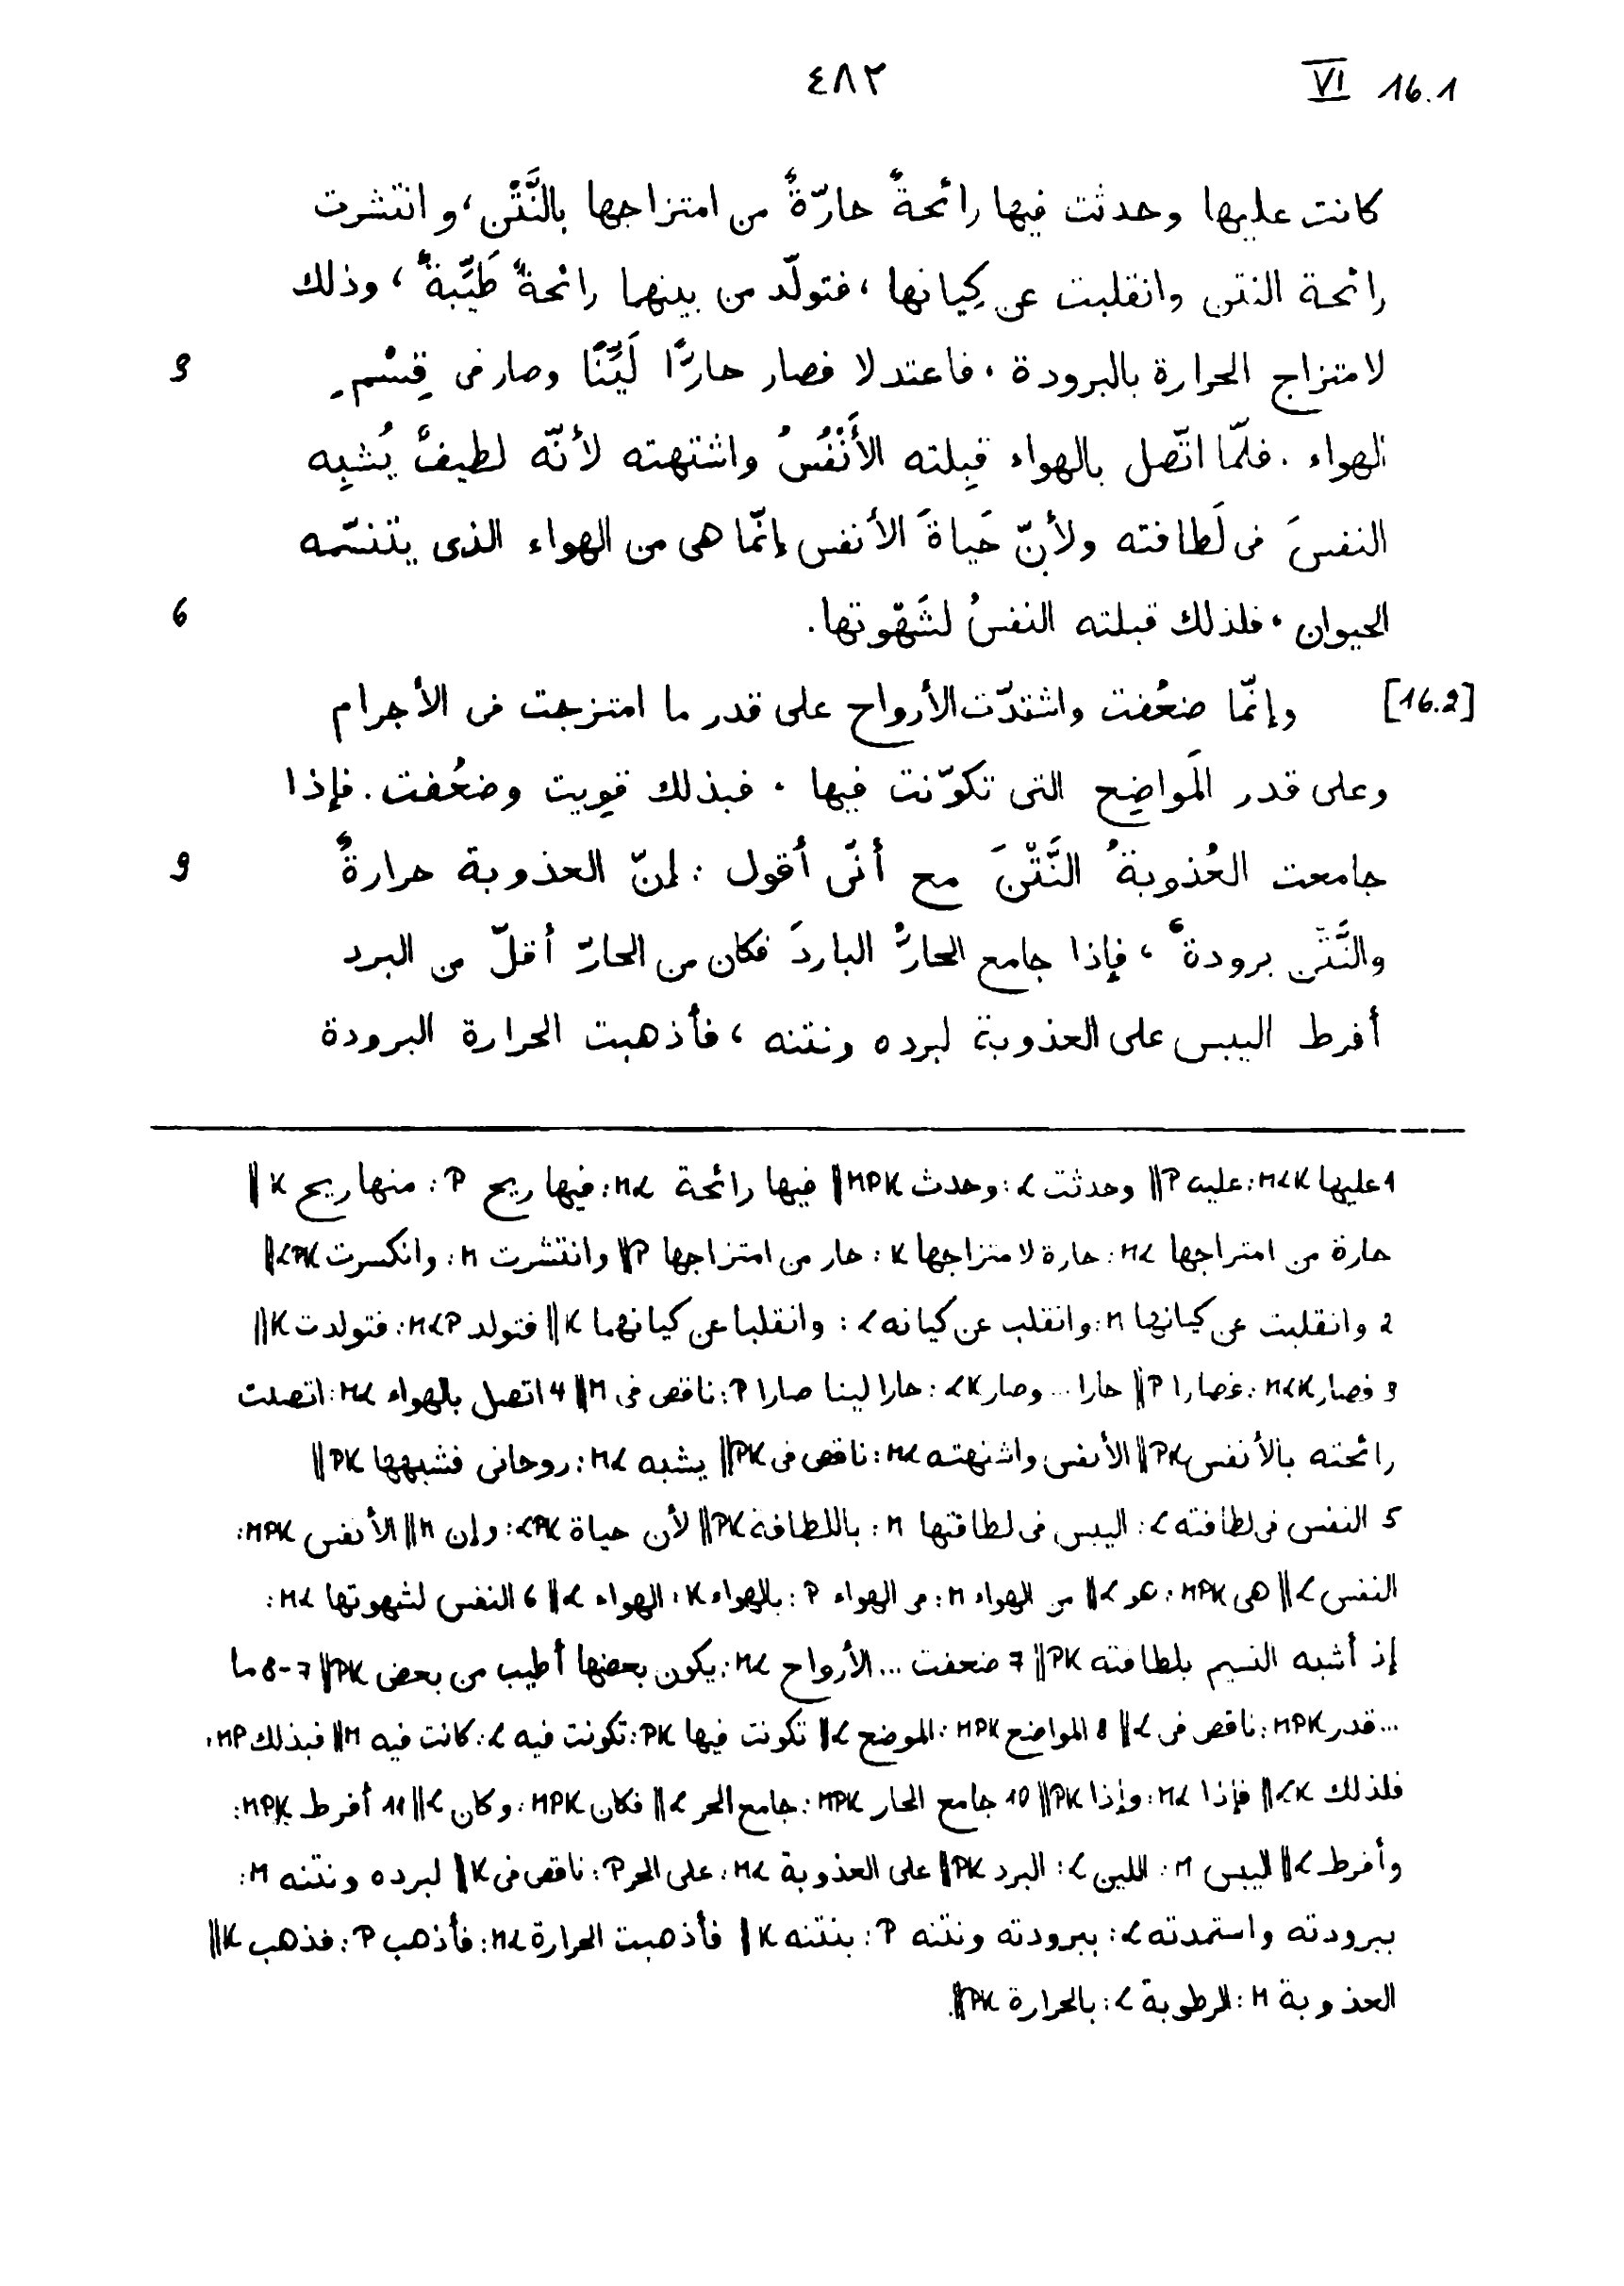 ٤٨٢ VI 16.1
كانت عليها وحدثت فيها رائحةٌ حارّةٌ من امتزاجها بالنَّتْن، وانتشرت
رائحة النتن وانقلبت عن كِيانها، فتولّد من بينهما رائحةٌ طَيِّبةٌ، وذلك
لامتزاج الحرارة بالبرودة، فاعتدلا فصار حارًّا لَيِّنًا وصار فى قِسْمِ 3
الهواء. فلمّا اتّصل بالهواء قبِلته الأَنْفُسُ واشتهته لأنّه لطيفٌ يُشبِه
النفسَ فى لَطافته ولأنّ حَياةَ الأنفس إنّما هى من الهواء الذى يتنسّمه
الحيوان، فلذلك قبلته النفسُ لشَهْوتها. 6
[16.2] وإنّما ضعُفت واشتدّت الأرواح على قدر ما امتزجت فى الأجرام
وعلى قدر المَواضِع التى تكوّنت فيها، فبذلك قوِيت وضعُفت. فإذا
جامعت العُذوبةُ النَّتْنَ مع أنّى أقول: إنّ العذوبة حرارةٌ 9
والنَّتْن برودةٌ، فإذا جامع الحارُّ الباردَ فكان من الحارّ أقلّ من البرد
أفرط اليبس على العذوبة لبرده ونتنه، فأذهبت الحرارة البرودة
1 عليها MLK: عليه P || وحدثت L: وحدث MPK || فيها رائحة ML: فيها ريح P: منها ريح K ||
حارة من امتزاجها ML: حارة لامتزاجها K: حار من امتزاجها P || وانتشرت M: وانكسرت LPK ||
2 وانقلبت عن كيانها M: وانقلب عن كيانه L: وانقلبا عن كيانهما K || فتولد MLP: فتولدت K ||
3 فصار MLK: فصارا P || حارا ... وصار LK: حارا لينا صارا P: ناقص فى M || 4 اتصل بالهواء ML: اتصلت
رائحته بالأنفس PK || الأنفس واشتهته ML: ناقص فى PK || يشبه ML: روحانى فشبهها PK ||
5 النفس فى لطافته L: اليبس فى لطافتها M: باللطافة PK || لأن حياة LPK: وإن M || الأنفس MPK:
النفس L || هى MPK: هو L || من الهواء M: مر الهواء P: بالهواء K: الهواء L || 6 النفس لشهوتها ML:
إذ أشبه النسيم بلطافته PK || 7 ضعفت ... الأرواح ML: يكون بعضها أطيب من بعض PK || 7-8 ما
... قدر MPK: ناقص فى L || 8 المواضع MPK: الموضع L || تكونت فيها PK: تكونت فيه L: كانت فيه M || فبذلك MP:
فلذلك LK || فإذا ML: وإذا PK || 10 جامع الحار MPK: جامع الحر L || فكان MPK: وكان L || 11 أفرط MPK:
وأفرط L || اليبس M: اللين L: البرد PK || على العذوبة ML: على الحر P: ناقص فى K || لبرده ونتنه M:
ببرودته واستمدته L: ببرودته ونتنه P: بنتنه K || فأذهبت الحرارة ML: فأذهب P: فذهب K ||
العذوبة M: الرطوبة L: بالحرارة PK ||.